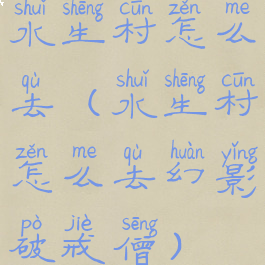 shuǐ shēng cūn zěn me
水生村怎么
qù shuǐ shēng cūn
去（水生村
zěn me qù huàn yǐng
怎么去幻影
pò jiè sēng
破戒僧）